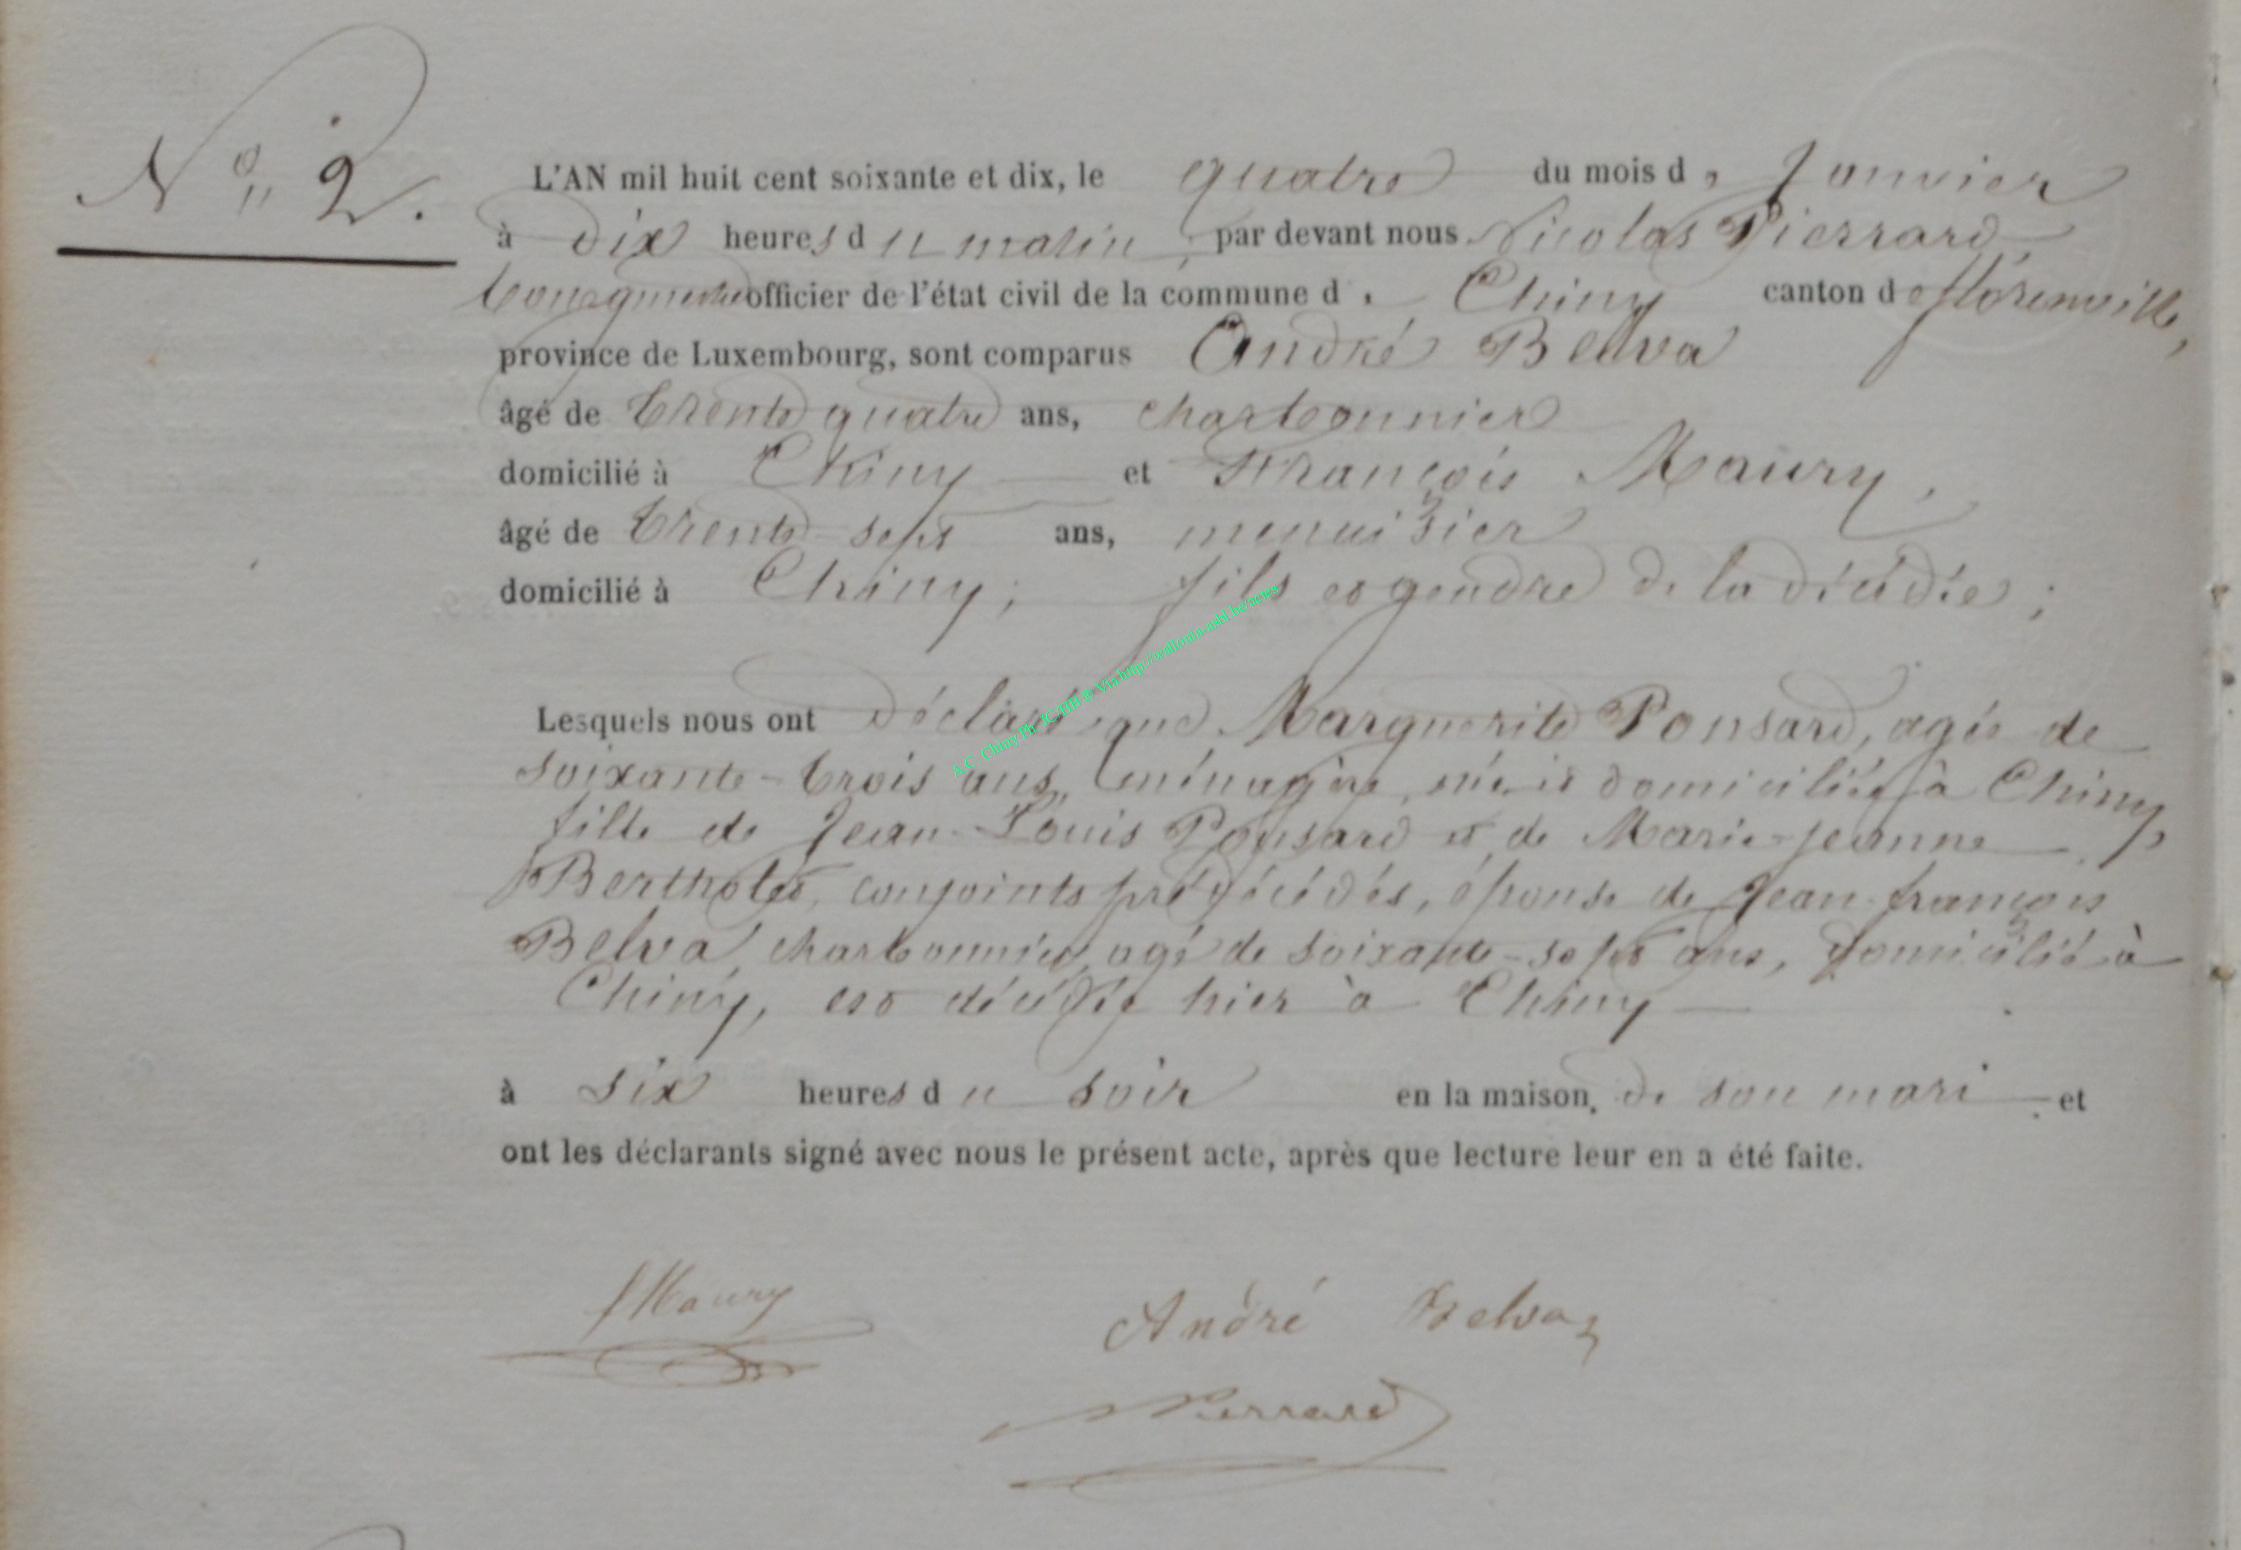 N° 2.
L'AN mil huit cent soixante et dix, le quatre du mois de Janvier
à dix heures du matin, par devant nous Nicolas Pierrard,
bourgmestre officier de l'état civil de la commune de Chiny canton de florenville,
province de Luxembourg, sont comparus André Belva
âgé de trente quatre ans, charbonnier
domicilié à Chiny et François Maury,
âgé de trente-sept ans, menuisier
domicilié à Chiny; fils et gendre de la décédée;
Lesquels nous ont déclaré que Marguerite Ponsard, agée de
soixante-trois ans, ménagère, née et domiciliée à Chiny,
fille de Jean-Louis Ponsard et de Marie-jeanne
Bertholet, conjoints prédécédés, épouse de Jean-françois
Belva charbonnier, agé de soixante-sept ans, domicilié à
Chiny, est décédée hier à Chiny
à six heures du soir en la maison de son mari et
ont les déclarants signé avec nous le présent acte, après que lecture leur en a été faite.
fMaury
André Belva
Pierrard